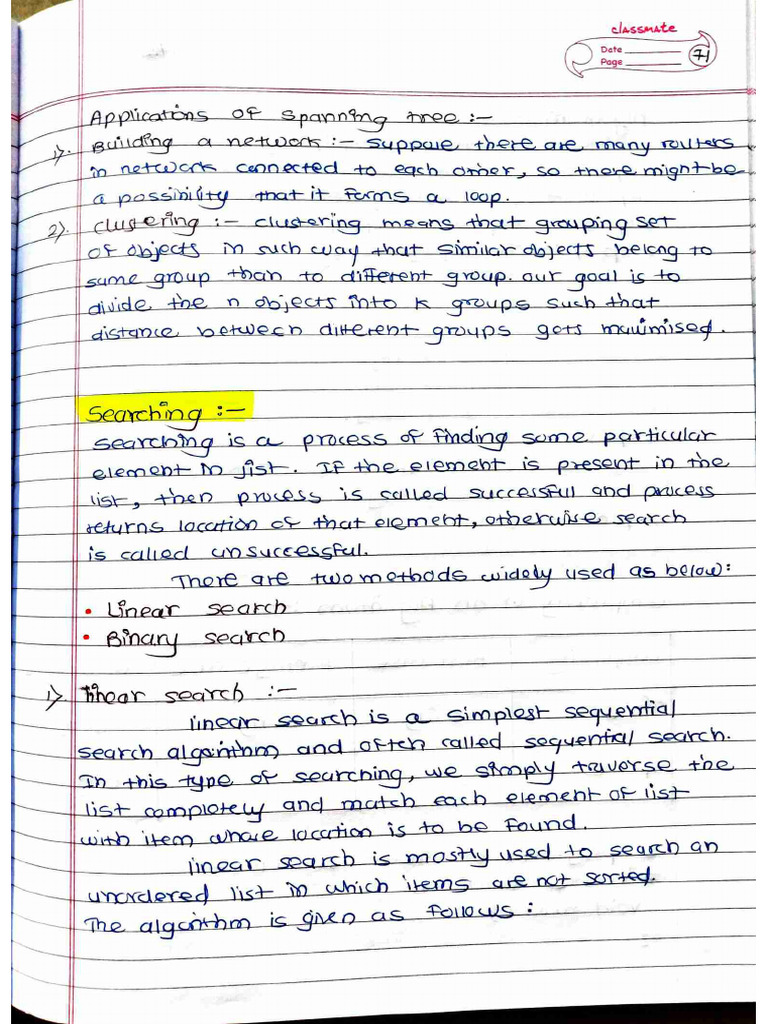 classmate
Date
Page 71
Applications of Spanning tree :-
1). Building a network :- Suppose there are many routers
in network connected to each other, so there might be
a possibility that it forms a loop.
2). Clustering :- clustering means that grouping set
of objects in such way that similar objects belong to
same group than to different group. our goal is to
divide the n objects into k groups such that
distance between different groups gets maximised.
Searching :-
Searching is a process of finding some particular
element in list. If the element is present in the
list, then process is called successful and process
returns location of that element, otherwise search
is called unsuccessful.
There are two methods widely used as below:
• Linear search
• Binary search
1) linear search :-
linear search is a simplest sequential
search algorithm and often called sequential search.
In this type of searching, we simply traverse the
list completely and match each element of list
with item whose location is to be found.
linear search is mostly used to search an
unordered list in which items are not sorted.
The algorithm is given as follows :